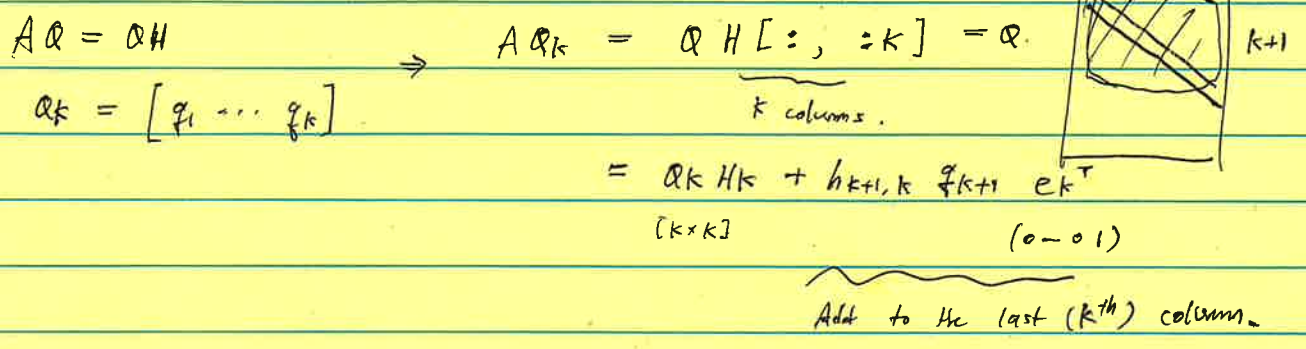 AQ = QH ⇒ AQk = Q H[:, :k] = Q. k+1
Qk = [q1 ... qk] k columns.
= Qk Hk + hk+1,k qk+1 ekᵀ
[k×k] (0 – 0 1)
Add to the last (kᵗʰ) column.